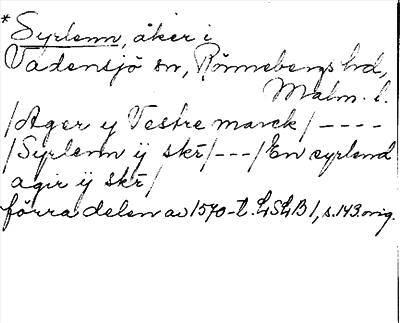 *Syrlenn, åker i
Vadensjö sn, Rönnebergs hd,
Malm. l.
/Ager y Vestre marck/ ----
/Syrlenn ÿ skr/---/En syrlend
agir ÿ skr/
förra delen av 1570-t. LSLB 1, s. 149. orig.